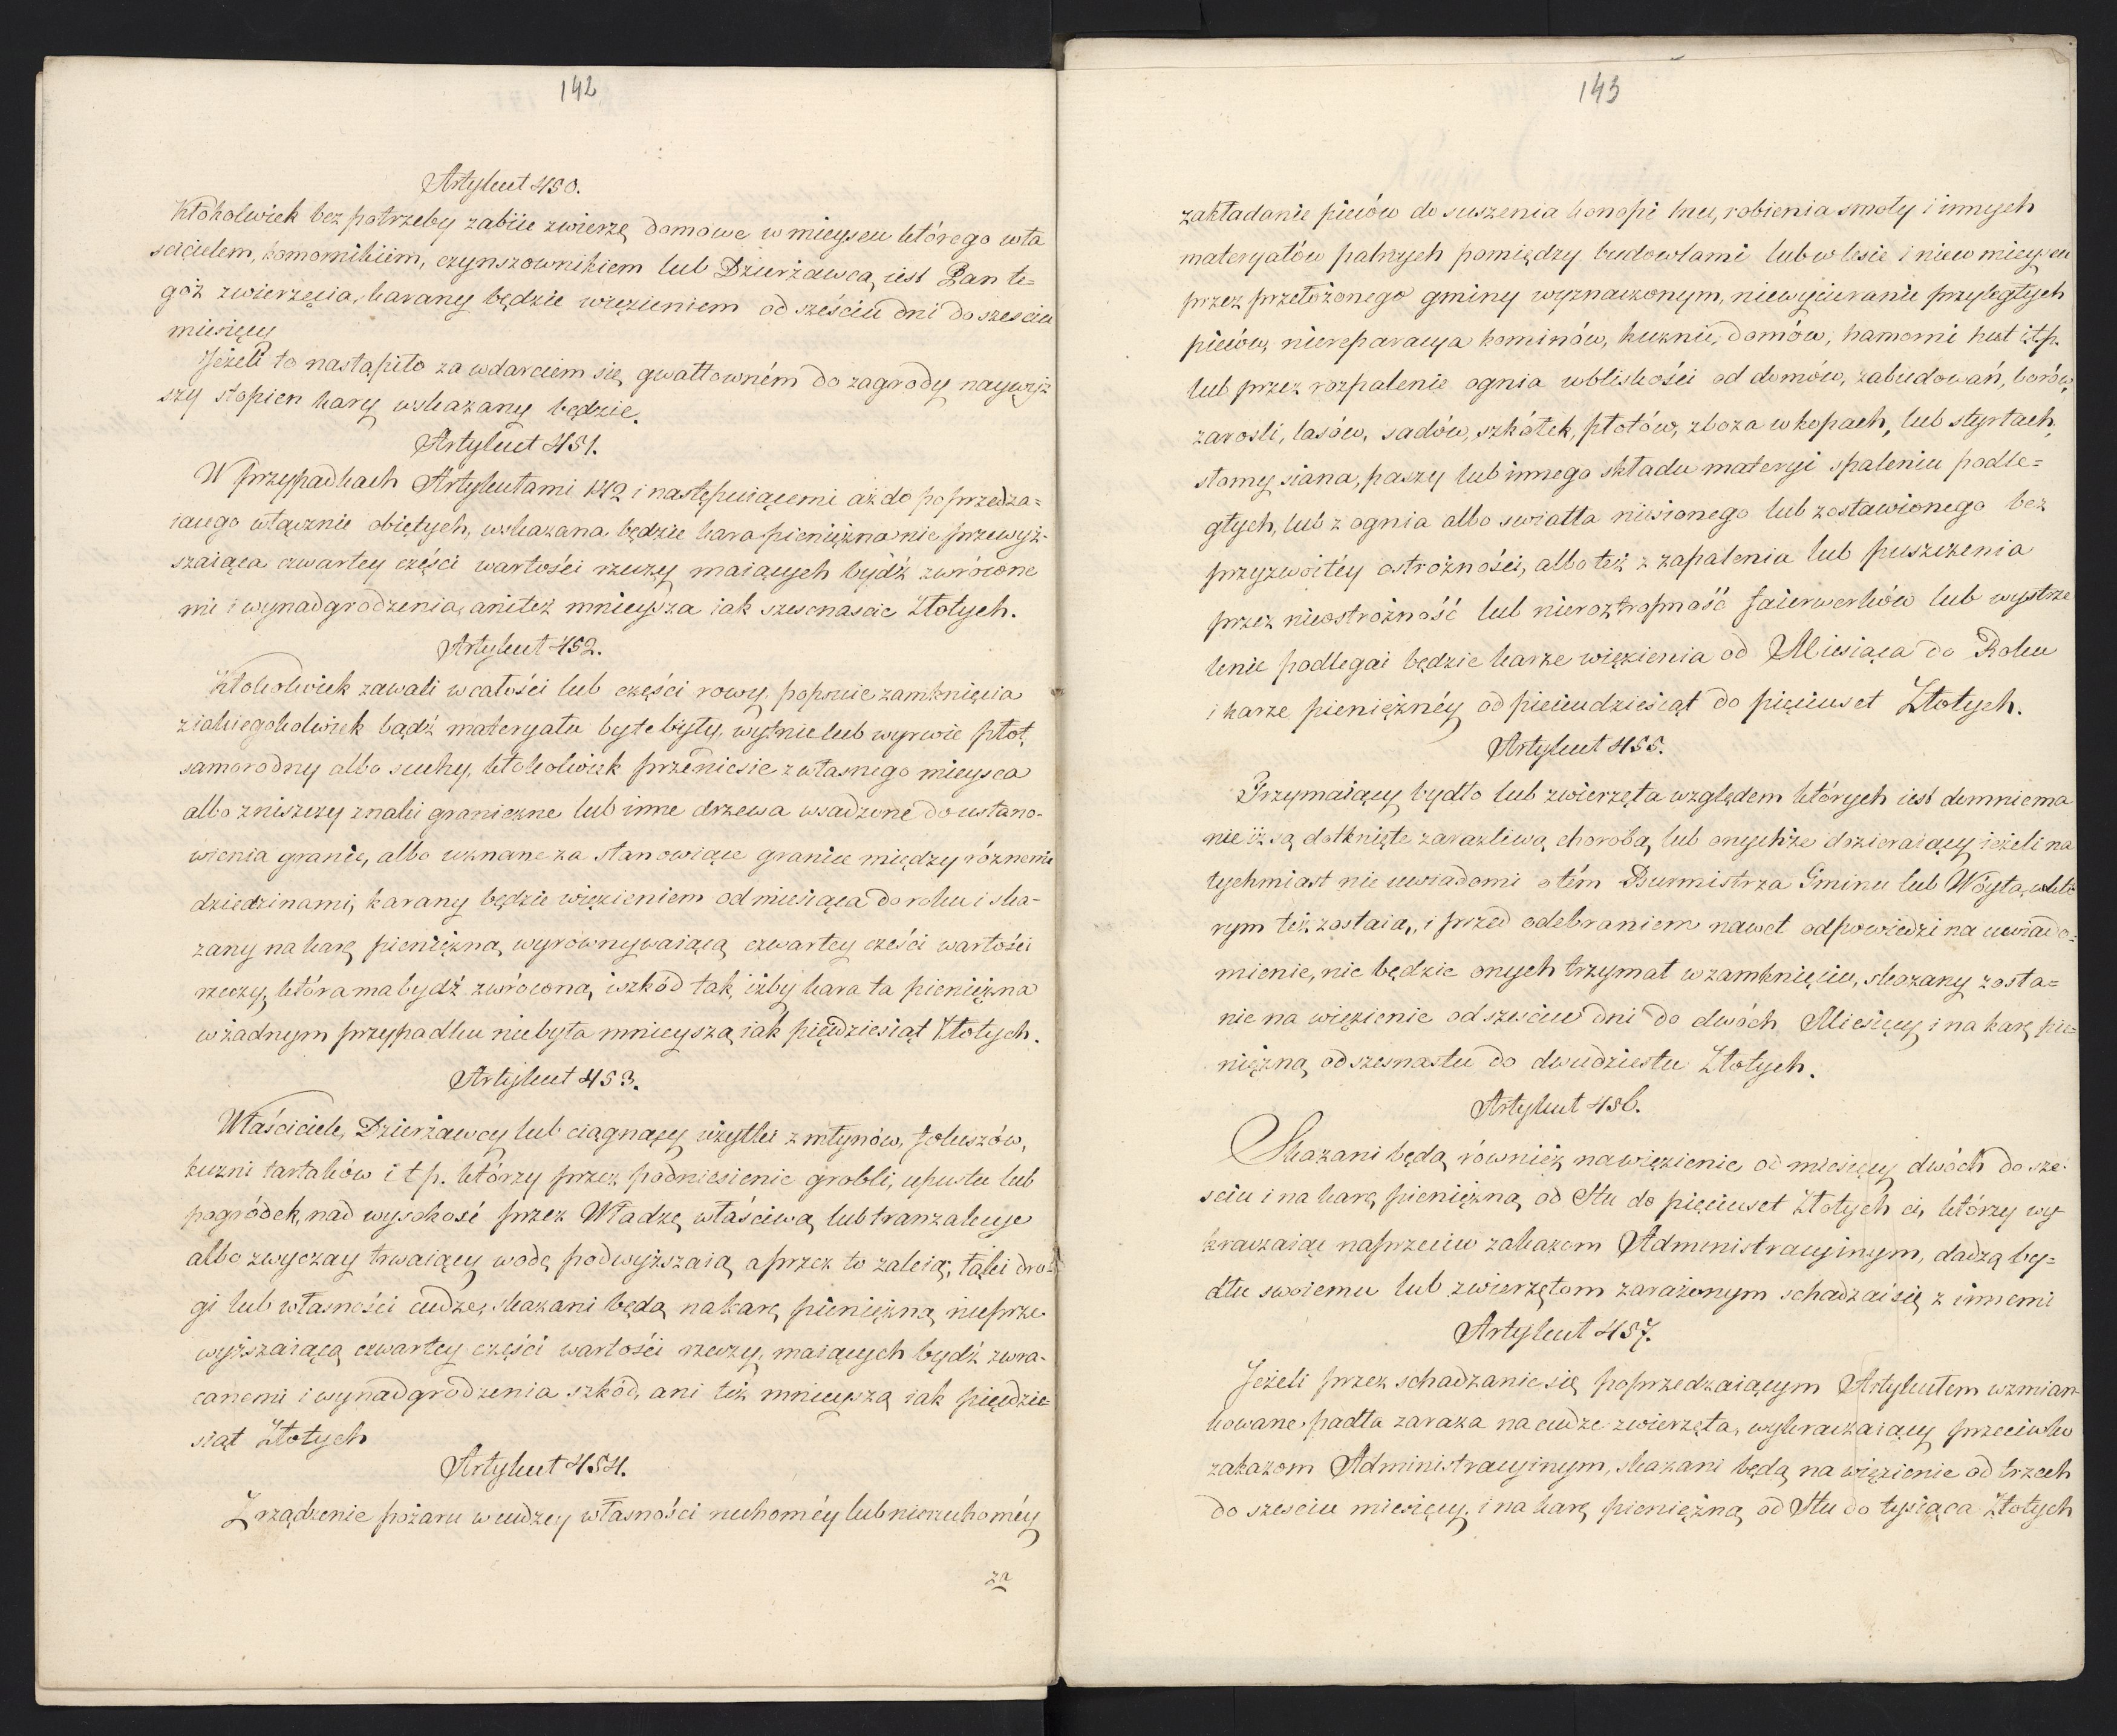 142
Artykuł 450.
Ktokolwiek bez potrzeby zabiie zwierzę domowe w mieyscu którego wła
scicielem, komornikiem, czynszownikiem lub Dzierżawcą iest Pan te=
goż zwierzęcia, karany będzie więzieniem od sześciu dni do sześciu
miesięcy
Jeżeli to nastąpiło za wdarciem się gwałtowném do zagrody naywyż
szy stopien kary wskazany będzie.
Artykuł 451.
W przypadkach Artykułami 442 i następuiącemi aż do poprzedza=
iącego włącznie obiętych, wskazana będzie kara pieniężna nie przewyż-
szaiąca czwartey części wartości rzeczy maiących bydź zwrócone
mi i wynadgrodzenia, anitéż mnieysza iak szesnascie Złotych.
Artykuł 452.
Ktokolwiek zawali w całości lub części rowy, popsuie zamknięcia
z iakiegokolwiek bądź materyału byłe były, wytnie lub wyrwie płot,
samorodny albo suchy, ktokolwiek przeniesie z własnego mieysca
albo zniszczy znaki graniczne lub inne drzewa wsadzone do ustano-
wienia granic, albo uznane za stanowiące granice między różnemi
dziedzinami, karany będzie więzieniem od miesiąca do roku i ska-
zany na karę pieniężną wyrównywaiącą czwartey części wartości
rzeczy, która ma bydź zwrócona, i szkód tak, iżby kara ta pieniężna
w żadnym przypadku niebyła mnieyszą iak pięćdziesiąt Złotych.
Artykuł 453.
Właściciele, Dzierżawcy lub ciągnący użytki z młynów, foluszów,
kuzni tartaków i t p. którzy przez podniesienie grobli, upustu lub
pogródek, nad wysokość przez Władzę właściwą lub tranzakcyę
albo zwyczay trwaiący wodę podwyższaią a przez to zaleią, łąki dro-
gi lub własności cudze, skazani będą na karę pieniężną nieprze-
wyższaiącą czwartey części wartości rzeczy, maiących bydź zwra-
canemi i wynadgrodzenia szkód, ani téż mnieyszą iak pięćdzie-
siąt Złotych
Artykuł 454.
Zrządzenie pożaru w cudzey własności ruchoméy lub nieruchoméy
za
143
zakładanie pieców do suszenia konopi lnu, robienia smoły i innych
materyałów palnych pomiędzy budowlami lub w lesie i nie w mieyscu
przez przełożonego gminy wyznaczonym, niewycieranie przyległych
pieców, niereparacya kominów, kuznic, domów, hamerni hut itp.
lub przez rozpalenie ognia w bliskości od domów, zabudowań, borów,
zarosli, lasów, sadów, szkółek, płotów, zboża w kopach, lub styrtach,
słomy siana, paszy lub innego składu materyi spaleniu podle=
głych, lub z ognia albo swiatła niesionego lub zostawionego bez
przyzwoitéy ostrożności, albo téż z zapalenia lub puszczenia
przez nieostrożność lub nieroztropność faierwerków lub wystrze
lenie podlegać będzie karze więzienia od Miesiąca do Roku
i karze pieniężnéy od pięciudziesiąt do pięciuset Złotych.
Artykuł 455.
Trzymaiący bydło lub zwierzęta względem których iest domniema
nie iż są dotknięte zaraźliwą chorobą, lub onychże dozieraiący ieżeli na
tychmiast nie uwiadomi o tém Burmistrza Gminu lub Wóyta, w któ
rym téż zostaią, i przed odebraniem nawet odpowiedzi na uwiado=
mienie, nie będzie onych trzymał w zamknięciu, skazany zosta=
nie na więzienie od sześciu dni do dwóch Miesięcy i na karę pie=
niężną od szesnastu do dwudziestu Złotych.
Artykuł 456.
Skazani będą również na więzienie od miesięcy dwóch do sze-
sciu i na karę pieniężną od Stu do pięciuset Złotych ci, którzy wy-
kraczaiąc naprzeciw zakazom Administracyinym, dadzą by=
dłu swoiemu lub zwierzętom zarażonym schadzać się z innemi
Artykuł 457.
Jeżeli przez schadzanie się poprzedzaiącym Artykułem wzmian
kowane padła zaraza na cudze zwierzęta, wykraczaiący przeciwko
zakazom Administracyinym, skazani będą na więzienie od trzech
do szesciu miesięcy, i na karę pieniężną od Stu do tysiąca Złotych